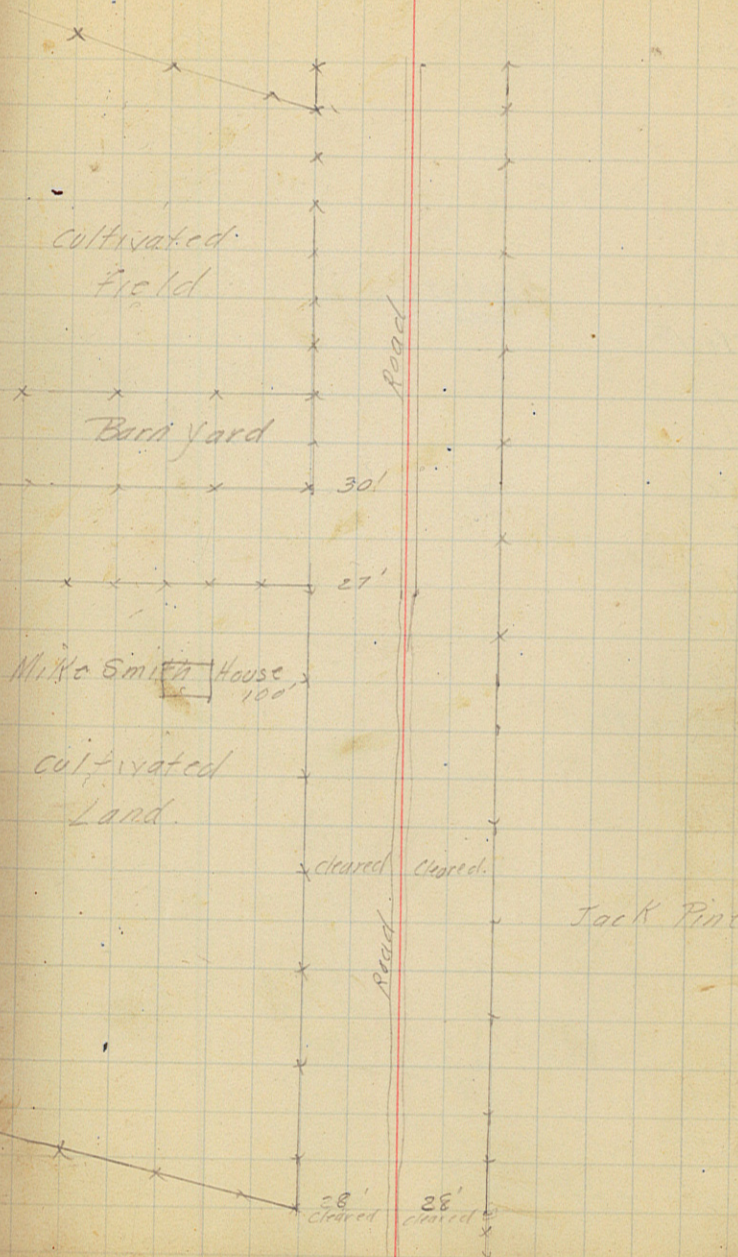 Cultivated
Field
Road
Barn Yard
30'
27'
Mike Smith House
100'
Cultivated
Land.
cleared Cleared.
Jack Pine
Road
28' 28'
Cleared cleared